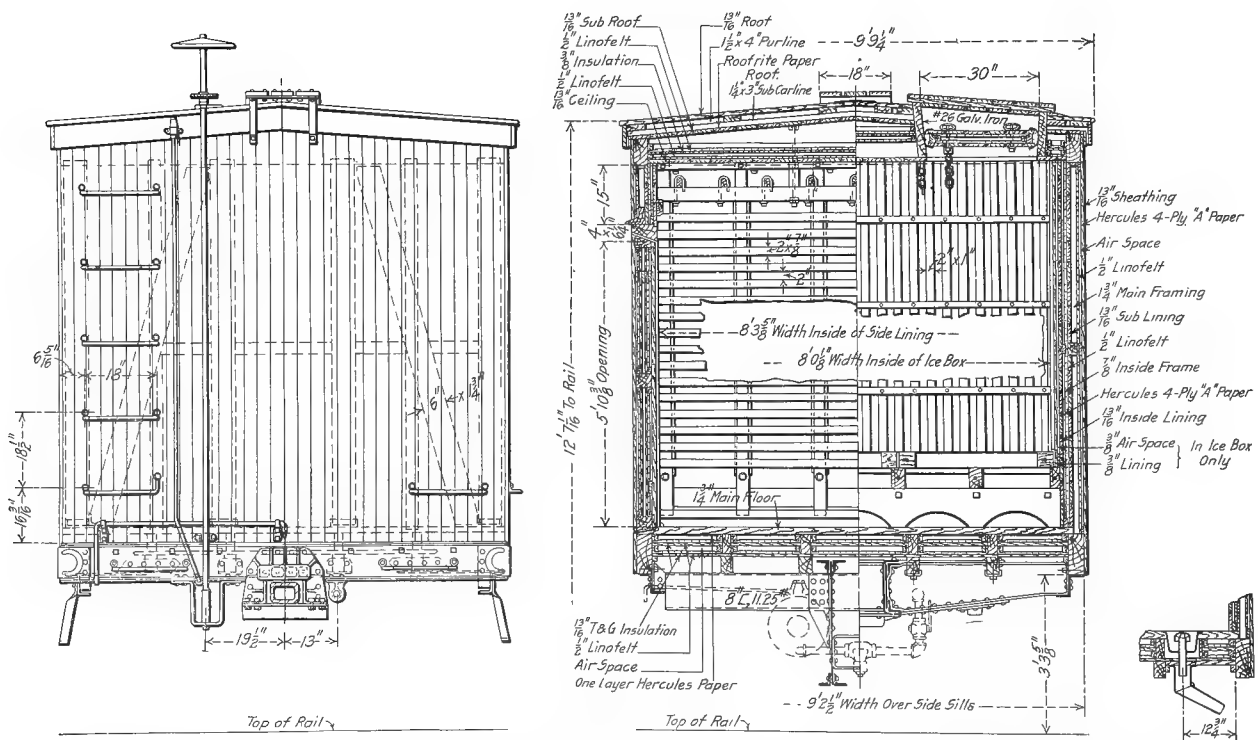 6 5/16"
18"
6" x 1 3/4"
18 1/2"
16 3/16"
19 1/2"
13"
Top of Rail
13/16" Sub Roof
1/2" Linofelt
3/8" Insulation
1/2" Linofelt
13/16" Ceiling
13/16" Roof
1 1/2" x 4" Purline
Roofrite Paper
Roof.
1/4" x 3" Sub Carline
9' 9 1/4"
18"
30"
#26 Galv. Iron
12' 7 1/16" To Rail
15"
5' 10 3/8" Opening
2" x 7/8"
2"
2" x 1"
8' 3 5/8" Width Inside of Side Lining
8' 0 1/8" Width Inside of Ice Box
1 3/4" Main Floor
13/16" Sheathing
Hercules 4-Ply "A" Paper
Air Space
1/2" Linofelt
1 3/4" Main Framing
13/16" Sub Lining
1/2" Linofelt
7/8" Inside Frame
Hercules 4-Ply "A" Paper
13/16" Inside Lining
3/8" Air Space
3/8" Lining
In Ice Box
Only
8" [, 11.25#
13/16" T&G Insulation
1/2" Linofelt
Air Space
One Layer Hercules Paper
9' 2 1/2" Width Over Side Sills
3' 3 5/8"
Top of Rail
12 3/4"